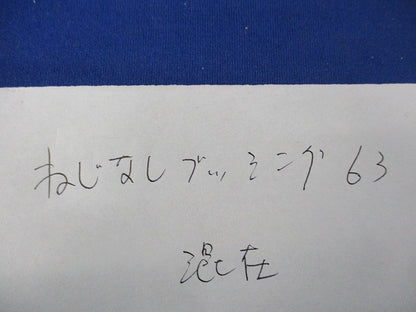 ねじなしブッシング 63
混在